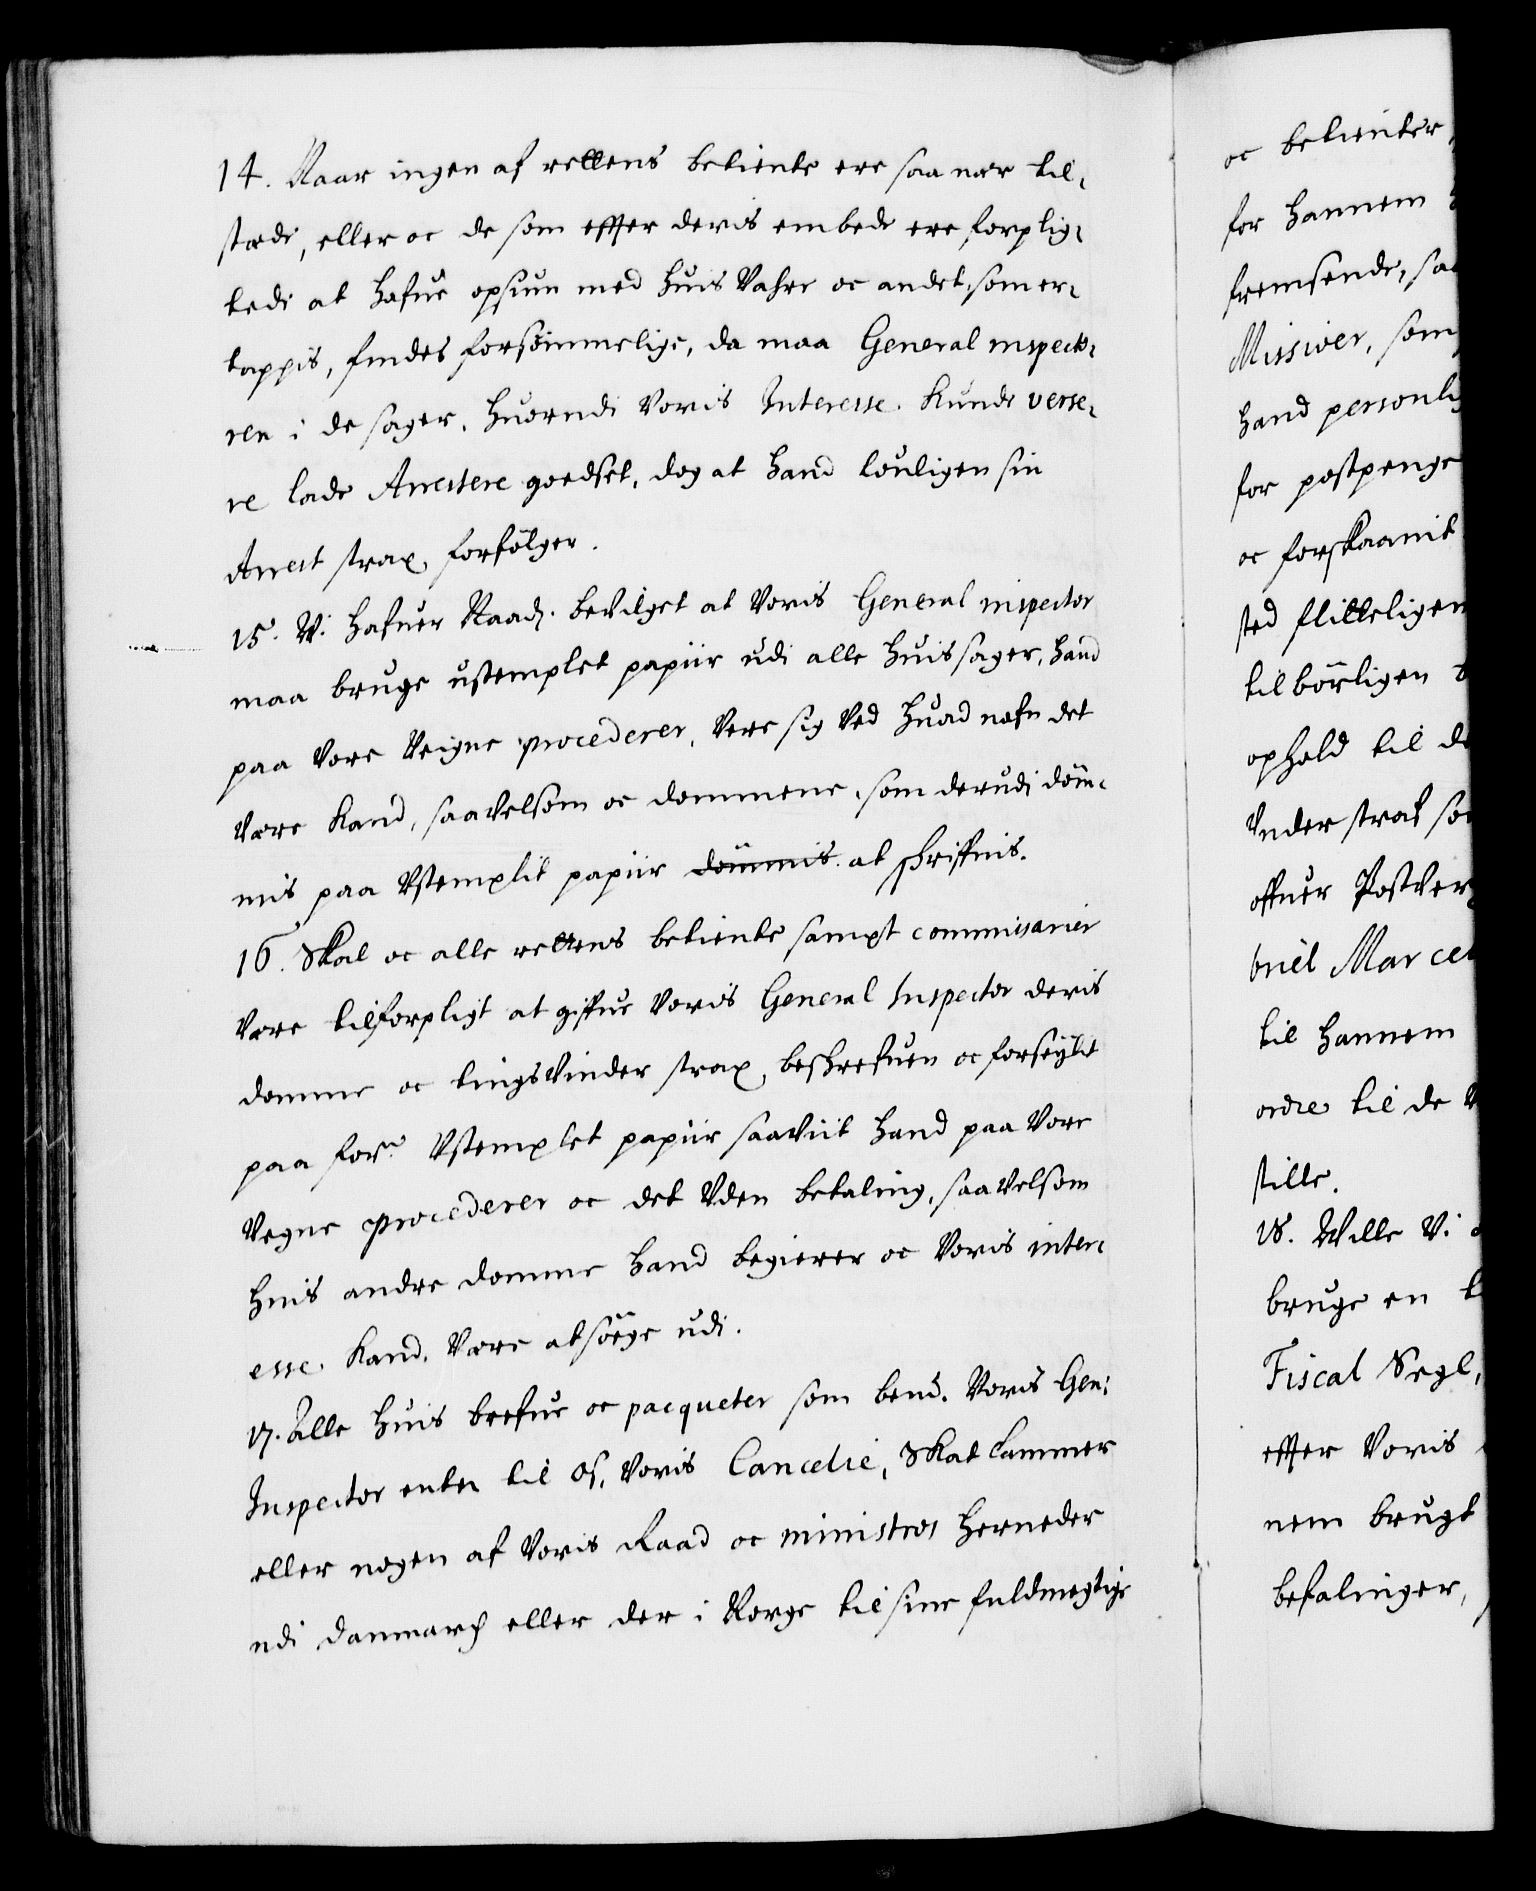 14. Naar ingen af rettens betiente ere saa nær til¬
stædi, eller oc de som effter deris embede ere forplig¬
tedi at hafue opsiun med huis Vahre oc andet, som er¬
tappis, findes forsømmelige, da maa General inspecto¬
ren i de sager, huorudi Voris Interesse kunde verse¬
re lade Arrestere goedset, dog at hand louligen sin
Arrest strax forfølger.
15. Vi hafuer Naad: beVilget at Voris General inspector
maa bruge ustemplet papiir udi alle huis sager, hand
paa Vore Veigne procederer, Vere sig Ved huad nafn det
Være kand, saavelsom oc dommene, som derudi döm¬
mis paa Vstemplit papiir dömmis at schriffuis.
16. Skal oc alle rettens betiente sampt commissarier
Være tilforpligt at giffue Voris General Inspector deris
domme oc tingsVinder strax beschrefuen oc forseylit
paa for.ne Vstemplet papiir saaviit hand paa Vore
Vegne procederer oc det Vden betaling, saavelsom
huis andre domme hand begierer oc Voris inter¬
esse kand Være at söege udi.
17. Alle huis brefue oc pacqueter som bem.te Voris Gen:
Inspector enten til Os, Voris Cancelie, Skat Cammer
eller nogen af Voris Raad oc ministros herneder
udi Danmarch eller der i Norge til sine fuldmegtige
oc betienter,
for hannem
fremsende, saa
Missiver, som
hand personlig
for postpenge
oc forskaanit
sted flitteligen
tilbörligen
ophold til de
Vnder straf so
offuer Postver
briel Marcel
til hannem
ordre til de
stille.
18. Wille Vi
bruge en
Fiscal Segl,
effter Voris
nem brugt
befalinger,